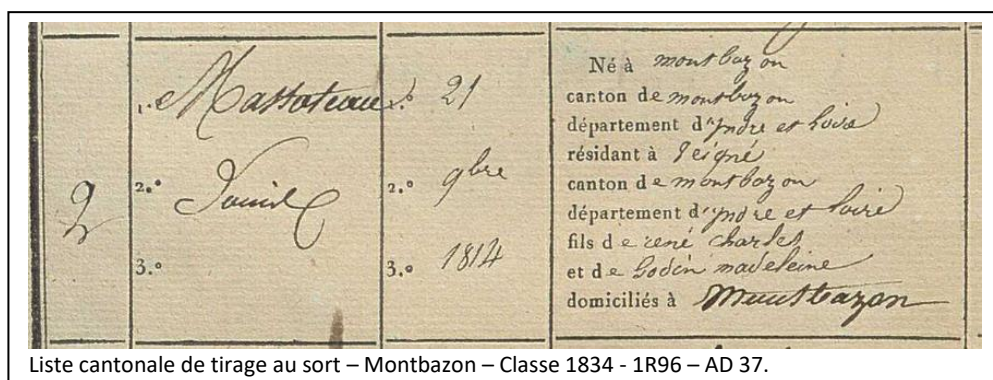 2
1.º Massoteau
2.º
3.º
1.º 21
2.º 9bre
3.º 1814
Né à montbazon
canton de montbazon
département d'yndre et Loire
résidant à Veigné
canton de montbazon
département d'yndre et Loire
fils de rené charles
et de Godin madeleine
domiciliés à Montbazon
Liste cantonale de tirage au sort – Montbazon – Classe 1834 - 1R96 – AD 37.